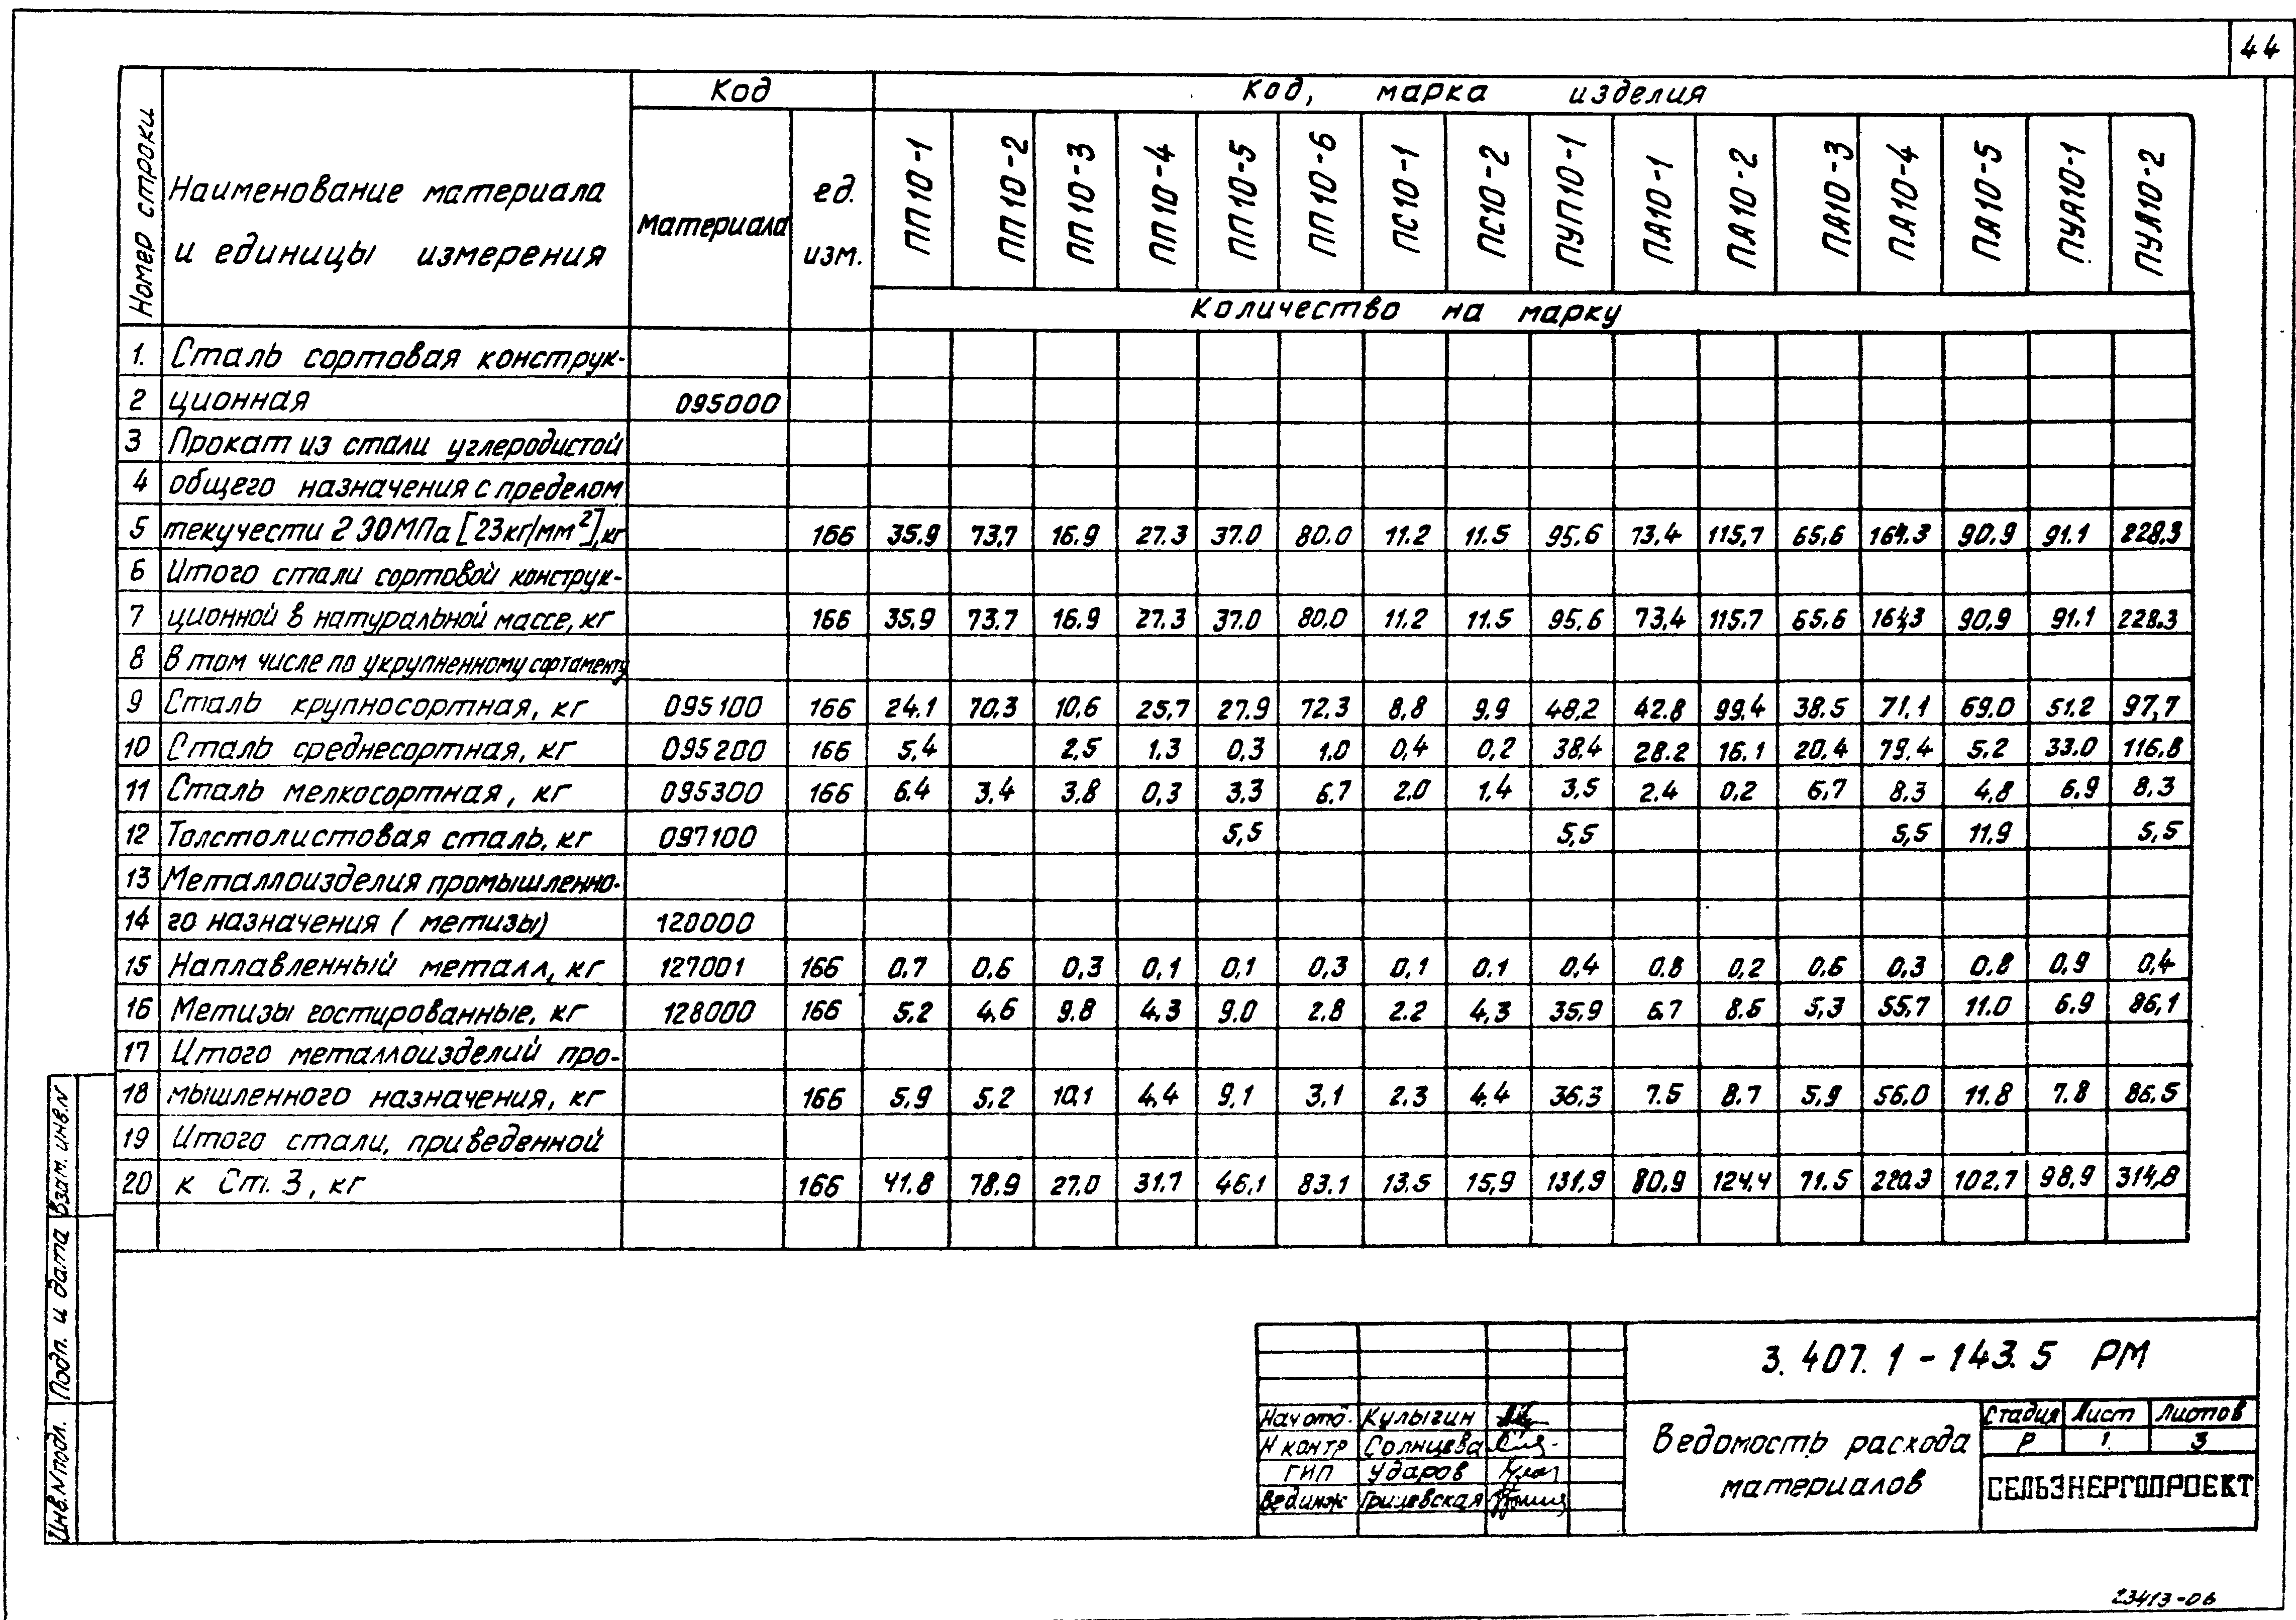 44
Номер строки
Наименование материала
и единицы измерения
Код
материала
ед.
изм.
Код, марка изделия
ПП10-1 ПП10-2 ПП10-3 ПП10-4 ПП10-5 ПП10-6 ПС10-1 ПС10-2 ПУП10-1 ПА10-1 ПА10-2 ПА10-3 ПА10-4 ПА10-5 ПУА10-1 ПУА10-2
Количество на марку
1. Сталь сортовая конструк-
2 ционная 095000
3 Прокат из стали углеродистой
4 общего назначения с пределом
5 текучести 230МПа [23кг/мм²], кг 166 35.9 73,7 16.9 27.3 37.0 80.0 11.2 11.5 95.6 73,4 115,7 65,6 164.3 90.9 91.1 228.3
6 Итого стали сортовой конструк-
7 ционной в натуральной массе, кг 166 35.9 73.7 16.9 27.3 37.0 80.0 11.2 11.5 95.6 73,4 115.7 65,6 164,3 90.9 91.1 228.3
8 В том числе по укрупненному сортаменту
9 Сталь крупносортная, кг 095100 166 24.1 70.3 10,6 25,7 27.9 72.3 8,8 9.9 48,2 42.8 99.4 38.5 71.1 69.0 51.2 97,7
10 Сталь среднесортная, кг 095200 166 5,4 2,5 1.3 0,3 1.0 0,4 0,2 38,4 28.2 16.1 20.4 79,4 5.2 33.0 116,8
11 Сталь мелкосортная, кг 095300 166 6.4 3.4 3.8 0,3 3.3 6.7 2.0 1.4 3.5 2.4 0.2 6,7 8.3 4,8 6,9 8.3
12 Толстолистовая сталь, кг 097100 5,5 5,5 5,5 11,9 5,5
13 Металлоизделия промышленно-
14 го назначения (метизы) 120000
15 Наплавленный металл, кг 127001 166 0.7 0,6 0,3 0,1 0.1 0,3 0,1 0.1 0,4 0.8 0,2 0.6 0,3 0.8 0,9 0,4
16 Метизы гостированные, кг 128000 166 5,2 4,6 9.8 4,3 9.0 2.8 2.2 4,3 35,9 6.7 8.5 5,3 55,7 11.0 6.9 86,1
17 Итого металлоизделий про-
18 мышленного назначения, кг 166 5,9 5,2 10,1 4,4 9,1 3,1 2.3 4.4 36.3 7.5 8.7 5,9 56.0 11.8 7.8 86,5
19 Итого стали, приведенной
20 к Ст. 3, кг 166 41.8 78,9 27,0 31.7 46,1 83.1 13.5 15,9 131,9 80,9 124.4 71.5 220.3 102.7 98,9 314,8
Взам. инв.N
Подп. и дата
Инв.N подл.
3.407.1-143.5 РМ
Нач отд. Кулыгин
Н контр Солнцева
ГИП Ударов
Вед инж Грицевская
Ведомость расхода
материалов
Стадия Лист Листов
Р 1 3
СЕЛЬЭНЕРГОПРОЕКТ
23413-06